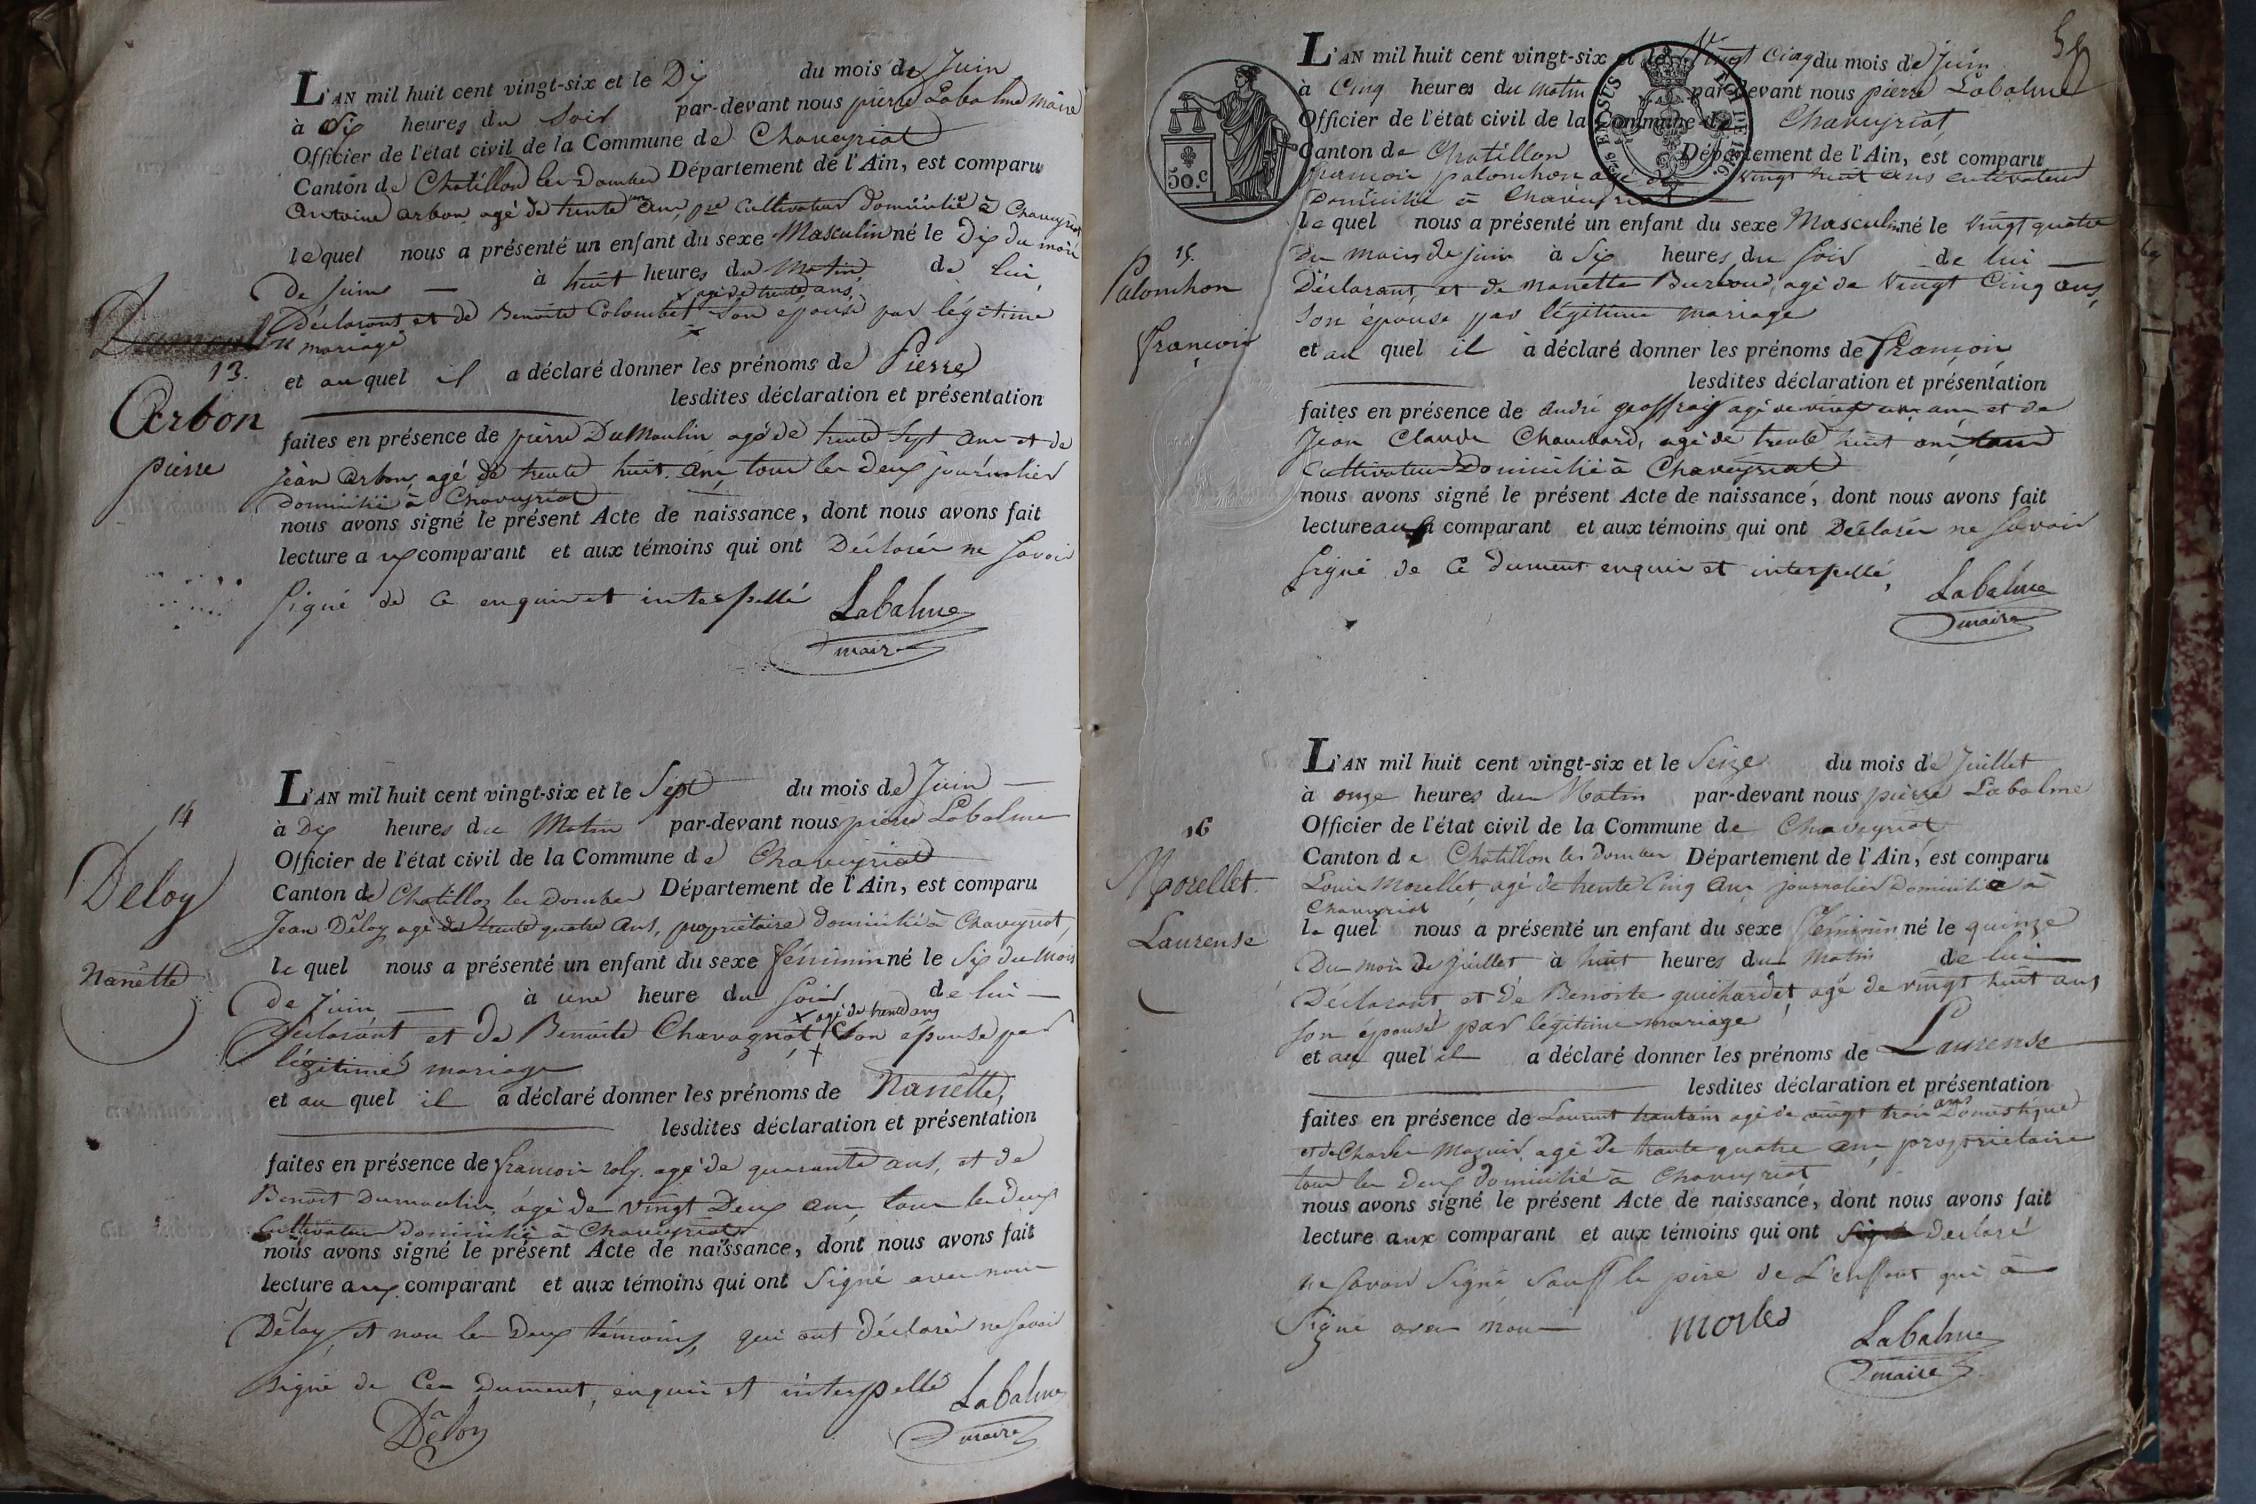 L'AN mil huit cent vingt-six et le Dix du mois de Juin
à Six heures du Soir par-devant nous pierre Labalme maire
Officier de l'état civil de la Commune de Chaveyriat
Canton de Chatillon les Dombes Département de l'Ain, est comparu
Antoine Arbon agé de trente ans, Cultivateur domicilié à Chaveyriat
lequel nous a présenté un enfant du sexe Masculin né le Dix du mois
de Juin à huit heures du Matin, de lui,
x agé de trente ans,
Déclarant et de Benoite Colombet son épouse par légitime
mariage
13.
et auquel il a déclaré donner les prénoms de Pierre
lesdites déclaration et présentation
Arbon
pierre
faites en présence de pierre Dumoulin agé de trente Sept ans et de
Jean Arbon, agé de trente huit ans, tous les deux journalier
domicilié à Chaveyriat
nous avons signé le présent Acte de naissance, dont nous avons fait
lecture aux comparant et aux témoins qui ont Déclarér ne savoir
Signé de ce enquis et interpellé
Labalme
maire
L'AN mil huit cent vingt-six et le Sept du mois de Juin
14
à Dix heures du Matin par-devant nous pierre Labalme
Officier de l'état civil de la Commune de Chaveyriat
Deloy
Canton de Chatillon les Dombes Département de l'Ain, est comparu
Jean Déloy agé de trente quatre ans, propriétaire domicilié à Chaveyriat,
Nanette
le quel nous a présenté un enfant du sexe féminin né le Six du Mois
de Juin à une heure du Soir de lui
x agé de trente ans
Déclarant et de Benoite Chavagnot, son épouse par
légitime mariage
et au quel il a déclaré donner les prénoms de Nanette,
lesdites déclaration et présentation
faites en présence de françois roly agé de quarante ans, et de
Benoit Dumoulin, agé de vingt Deux ans, tous les deux
Cultivateur domicilié à Chaveyriat
nous avons signé le présent Acte de naissance, dont nous avons fait
lecture aux comparant et aux témoins qui ont Signé avec nous
Déloy, et non les Deux témoins, qui ont déclarér ne savoir
Signé de Ce Dument, enquis et interpellé
Labalme
maire
Déloy
55
L'AN mil huit cent vingt-six et le Vingt Cinq du mois de Juin
à Cinq heures du matin par devant nous pierre Labalme
Officier de l'état civil de la Commune de Chaveyriat
Canton de Chatillon Département de l'Ain, est comparu
françois palonchon agé de vingt huit ans cultivateur
Domicilié à Chaveyriat
50.C
le quel nous a présenté un enfant du sexe Masculin né le vingt quatre
15.
Du mois de Juin à Six heures du Soir de lui
Palonchon
Déclarant, et de nanette Burtoud, agé de Vingt Cinq ans,
Son épouse par légitime mariage
françois
et au quel il a déclaré donner les prénoms de françois
lesdites déclaration et présentation
faites en présence de andré geoffray agé de vingt ans et de
Jean Claude Chambard, agé de trente huit ans,
Cultivateur Domicilié à Chaveyriat
nous avons signé le présent Acte de naissance, dont nous avons fait
lecture au comparant et aux témoins qui ont Déclarér ne savoir
Signé de Ce dument enquis et interpellé,
Labalme
maire
L'AN mil huit cent vingt-six et le Seize du mois de Juillet
à onze heures du Matin par-devant nous pierre Labalme
16
Officier de l'état civil de la Commune de Chaveyriat
Canton de Chatillon les Dombes Département de l'Ain, est comparu
Morellet
Louis Morellet, agé de trente Cinq ans, journalier Domicilié à
Chaveyriat
le quel nous a présenté un enfant du sexe féminin né le quinze
Laurense
Du mois de Juillet à huit heures du matin de lui
Déclarant et de Benoite guichardet, agé de vingt huit ans
Son épouse par légitime mariage
et au quel il a déclaré donner les prénoms de Laurense
lesdites déclaration et présentation
faites en présence de Laurent agé de vingt trois ans Domestique
et de Charles agé de trente quatre ans, propriétaire
tous les Deux domicilié à Chaveyriat
nous avons signé le présent Acte de naissance, dont nous avons fait
lecture aux comparant et aux témoins qui ont déclaré
ne savoir Signé Sauf le père de L'enfant qui à
Signé avec nous
Labalme
maire